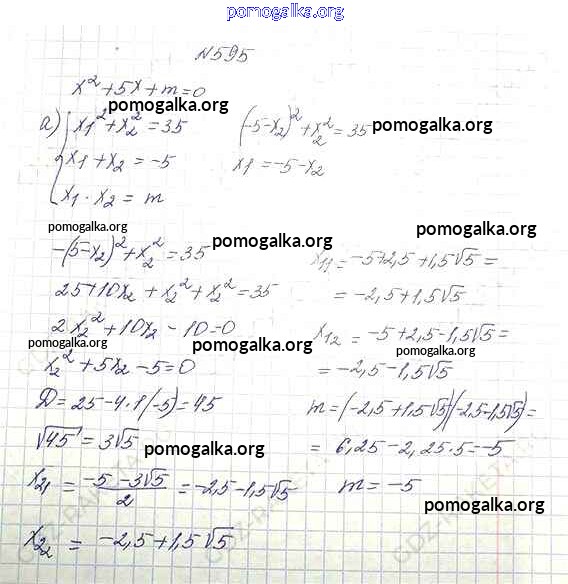 pomogalka.org
№595
x² + 5x + m = 0
pomogalka.org
а) { x₁² + x₂² = 35
x₁ + x₂ = -5
x₁ · x₂ = m
(-5-x₂)² + x₂² = 35
pomogalka.org
x₁ = -5 - x₂
pomogalka.org
pomogalka.org
-(5-x₂)² + x₂² = 35
pomogalka.org
25+10x₂ + x₂² + x₂² = 35
2x₂² + 10x₂ - 10 = 0
pomogalka.org
pomogalka.org
x₂² + 5x₂ - 5 = 0
D = 25 - 4·1(-5) = 45
√45 = 3√5
pomogalka.org
x₂₁ = (-5 - 3√5)/2 = -2,5 - 1,5√5
x₂₂ = -2,5 + 1,5√5
pomogalka.org
x₁₁ = -5+2,5 + 1,5√5 =
= -2,5 + 1,5√5
x₁₂ = -5+2,5-1,5√5 =
pomogalka.org
= -2,5 - 1,5√5
m = (-2,5 + 1,5√5)(-2,5-1,5√5) =
= 6,25 - 2,25·5 = -5
m = -5
pomogalka.org
GDZ-RAKETA